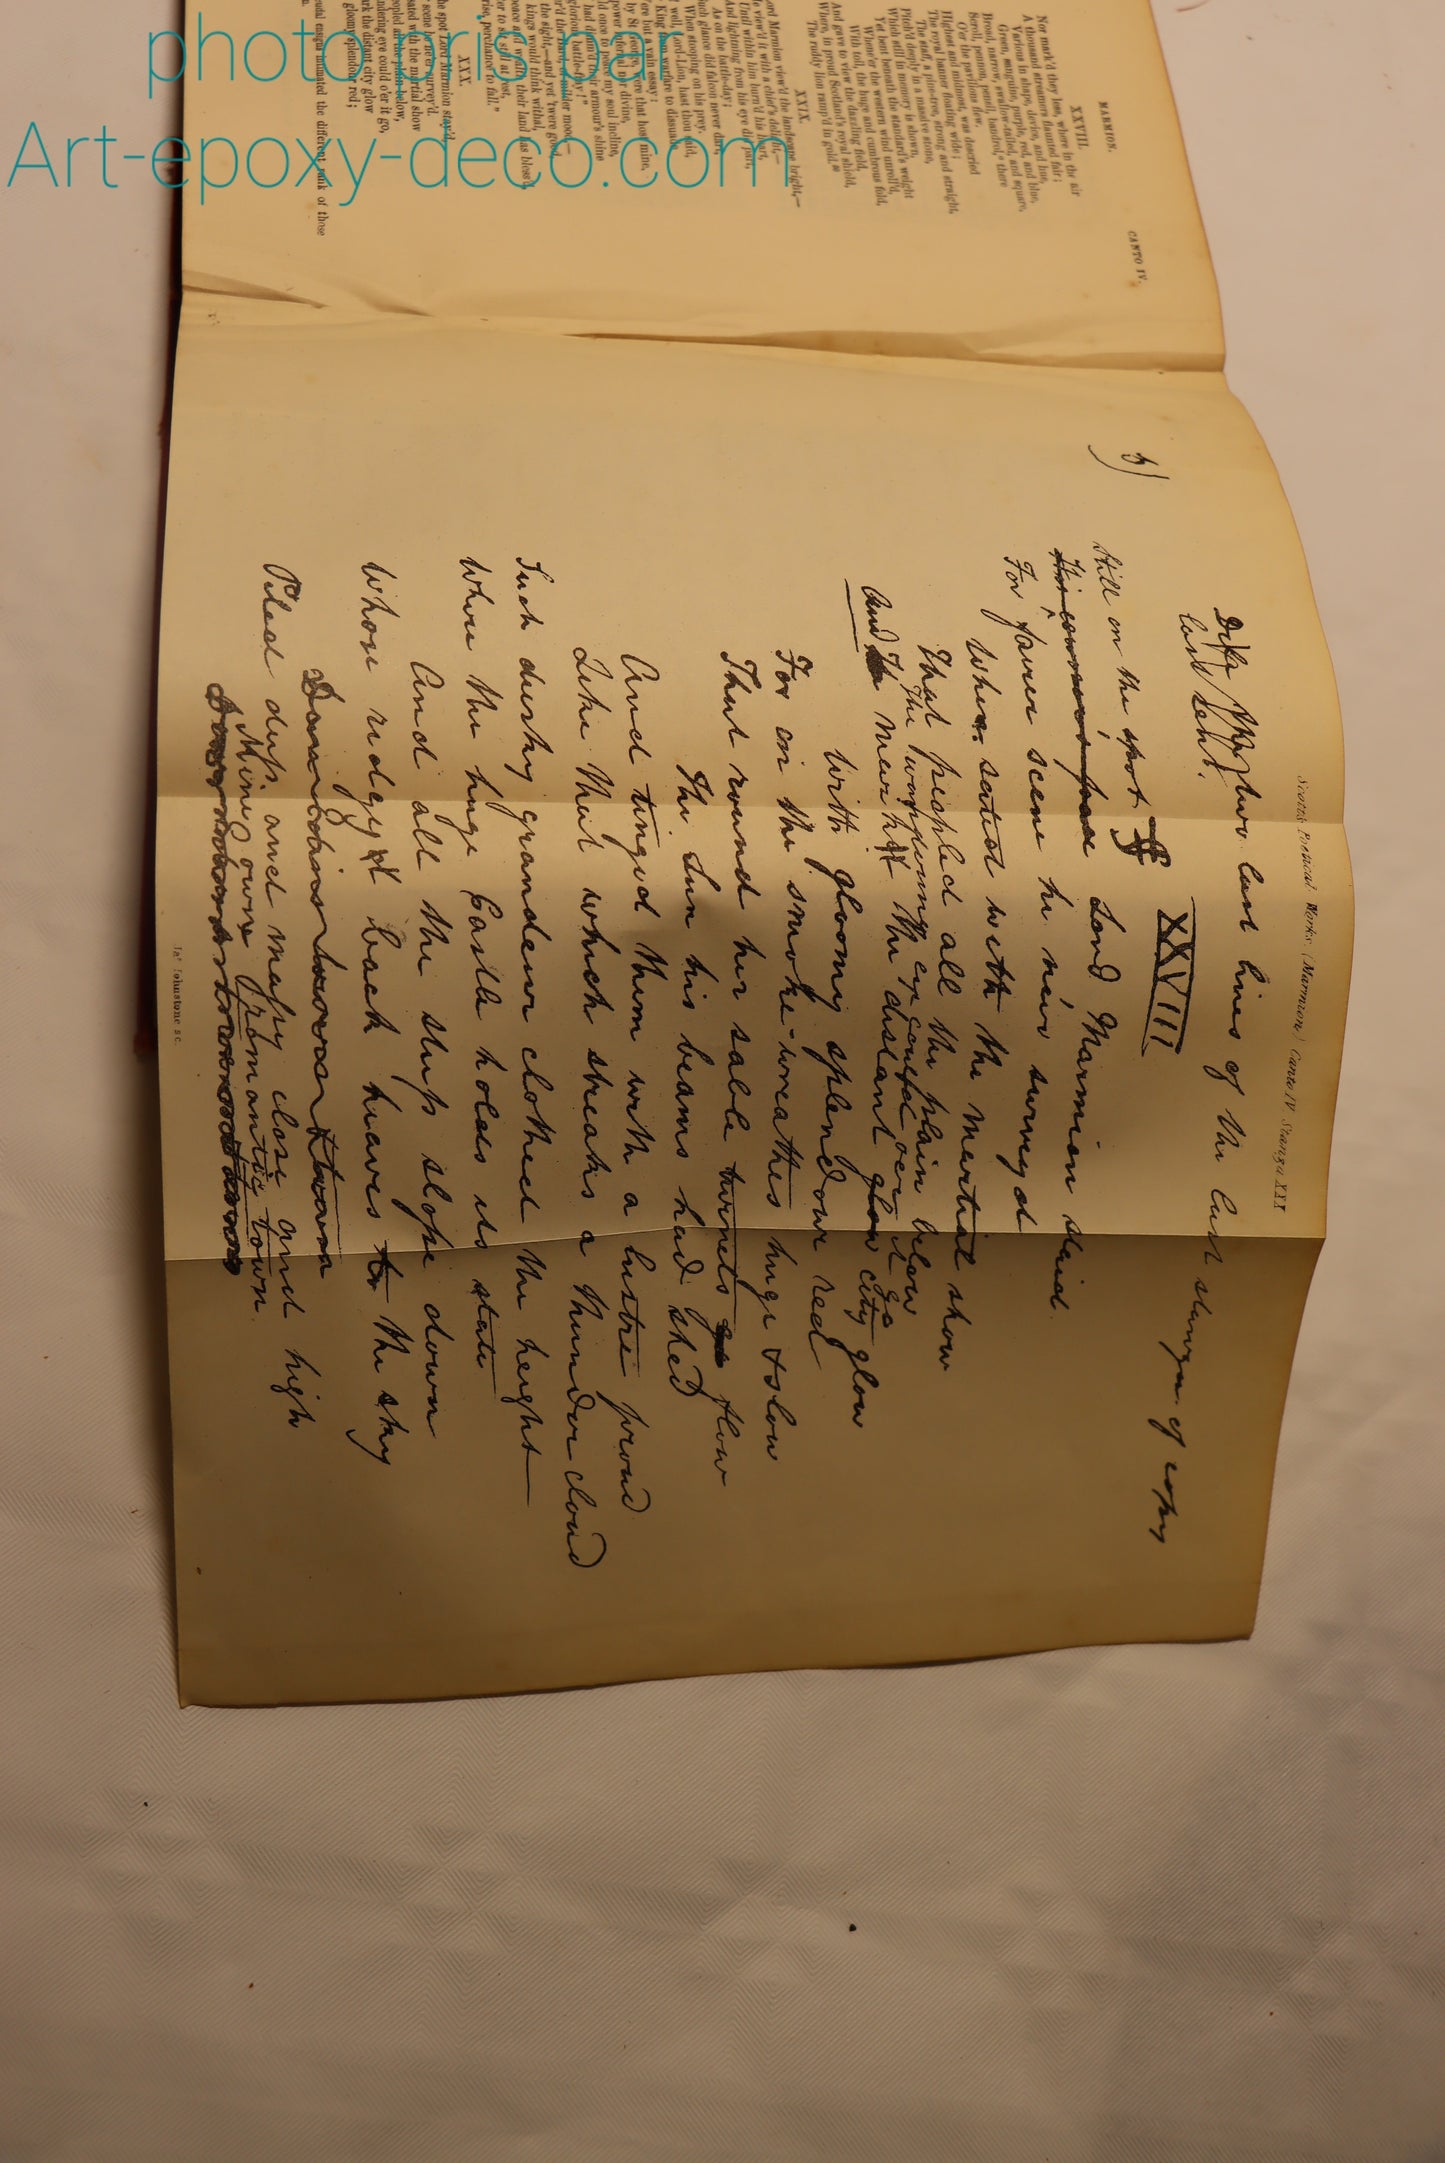 photo-crisp.ar
Art-epoxy-deco.com
MARMION.
CANTO IV.
XXVIII.
Nor mark'd they less, where in the air
A thousand streamers flaunted fair;
Various in shape, device, and hue,
Green, sanguine, purple, red, and blue,
Broad, narrow, swallow-tailed, and square,
Scroll, pennon, pensil, bandrol, there
O'er the pavilions flew.
Highest and midmost, was descried
The royal banner floating wide;
The staff, a pine-tree, strong and straight,
Pitch'd deeply in a massive stone,
Which still in memory is shown,
Yet bent beneath the standard's weight
Whene'er the western wind unroll'd,
With toil, the huge and cumbrous fold,
And gave to view the dazzling field,
Where, in proud Scotland's royal shield,
The ruddy lion ramp'd in gold.
XXIX.
Lord Marmion view'd the landscape bright,—
He view'd it with a chief's delight,—
Until within him burn'd his heart,
And lightning from his eye did part,
As on the battle-day;
Such glance did falcon never dart,
When stooping on his prey.
well, Lord-Lion, hast thou said,
King from warfare to dissuade
ere but a vain essay:
by St George, were that host mine,
power infernal nor divine,
ld once to peace my soul incline,
had dimm'd their armour's shine
glorious battle-fray!"
er'd the Bard, of milder mood,—
the sight,—and yet 'twere good,
kings would think withal,
peace and wealth their land has bless'd,
er to sit still at rest,
rise, perchance to fall."
XXX.
he spot Lord Marmion stay'd,
scene he ne'er survey'd.
eated with the martial show
eopled all the plain below,
ndering eye could o'er it go,
ark the distant city glow
gloomy splendour red;
Scott's Poetical Works. (Marmion) Canto IV. Stanza XXX
5)
two last lines of the last stanza of copy
last sent.
XXVIII
Still on the spot Lord Marmion staid
For fairer scene he neer surveyd
When sated with the martial show
That peopled all the plain below
The wandering eye could oer it go
And mark the distant city glow
With gloomy splendour red
For on the smoke-wreathes huge & slow
That round her sable turrets flow
The Sun his beams had shed
And tinged them with a lustre proud
Like that which streaks a thunder cloud
Such dusky grandeur clothed the height
Where the huge Castle holds its state
And all the steep slope down
Whose ridgy back heaves to the sky
Piled deep and massy close and high
Mine own romantic town.
Jas. Johnstone sc.